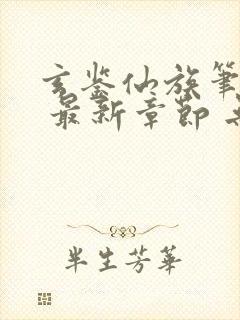 玄鉴仙族笔
最新章節
半生芳華